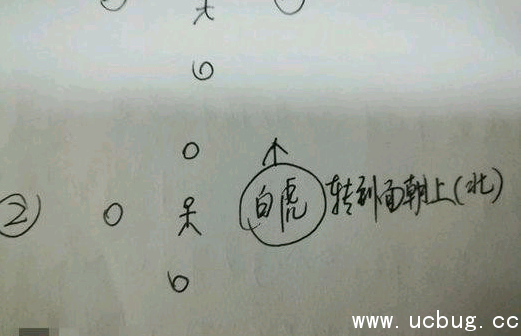 ② 白虎 转到面朝上(北)
www.ucbug.cc